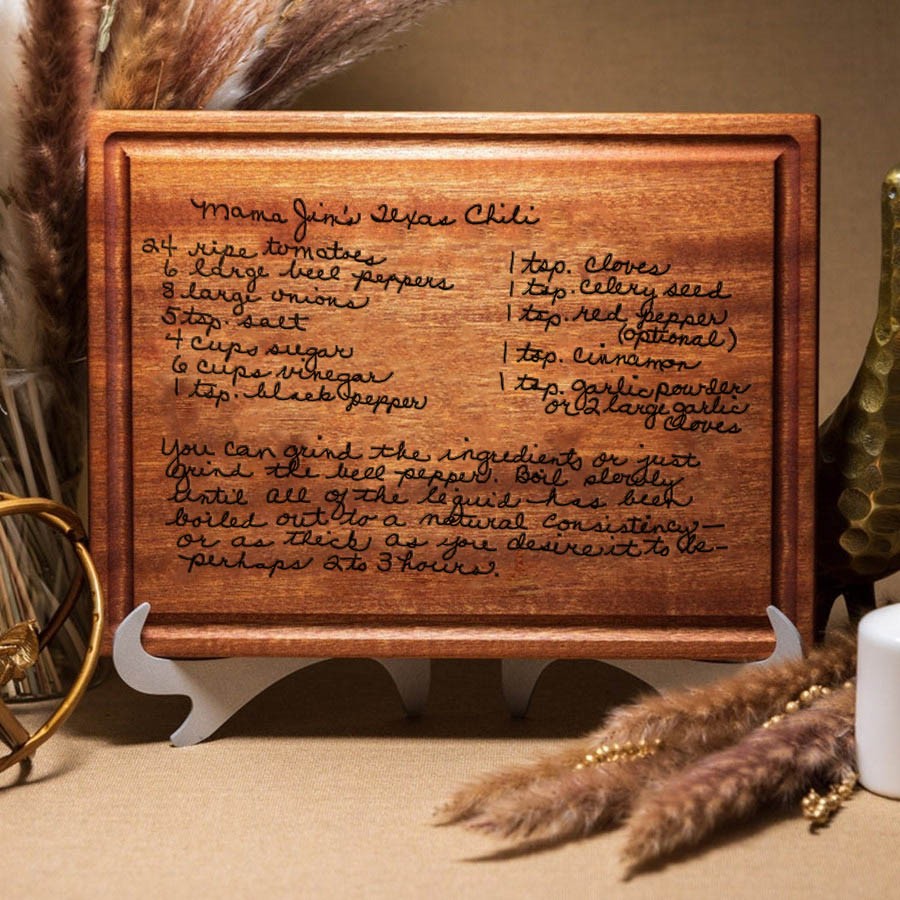 Mama Jim's Texas Chili
24 ripe tomatoes
6 large beel peppers
8 large onions
5 tsp. salt
4 cups sugar
6 cups vinegar
1 tsp. black pepper
1 tsp. cloves
1 tsp. celery seed
1 tsp. red pepper
(optional)
1 tsp. cinnamon
1 tsp. garlic powder
or 2 large garlic
cloves
You can grind the ingredients or just
grind the bell pepper. Boil slowly
until all of the liquid has been
boiled out to a natural consistency—
or as thick as you desire it to be—
perhaps 2 to 3 hours.